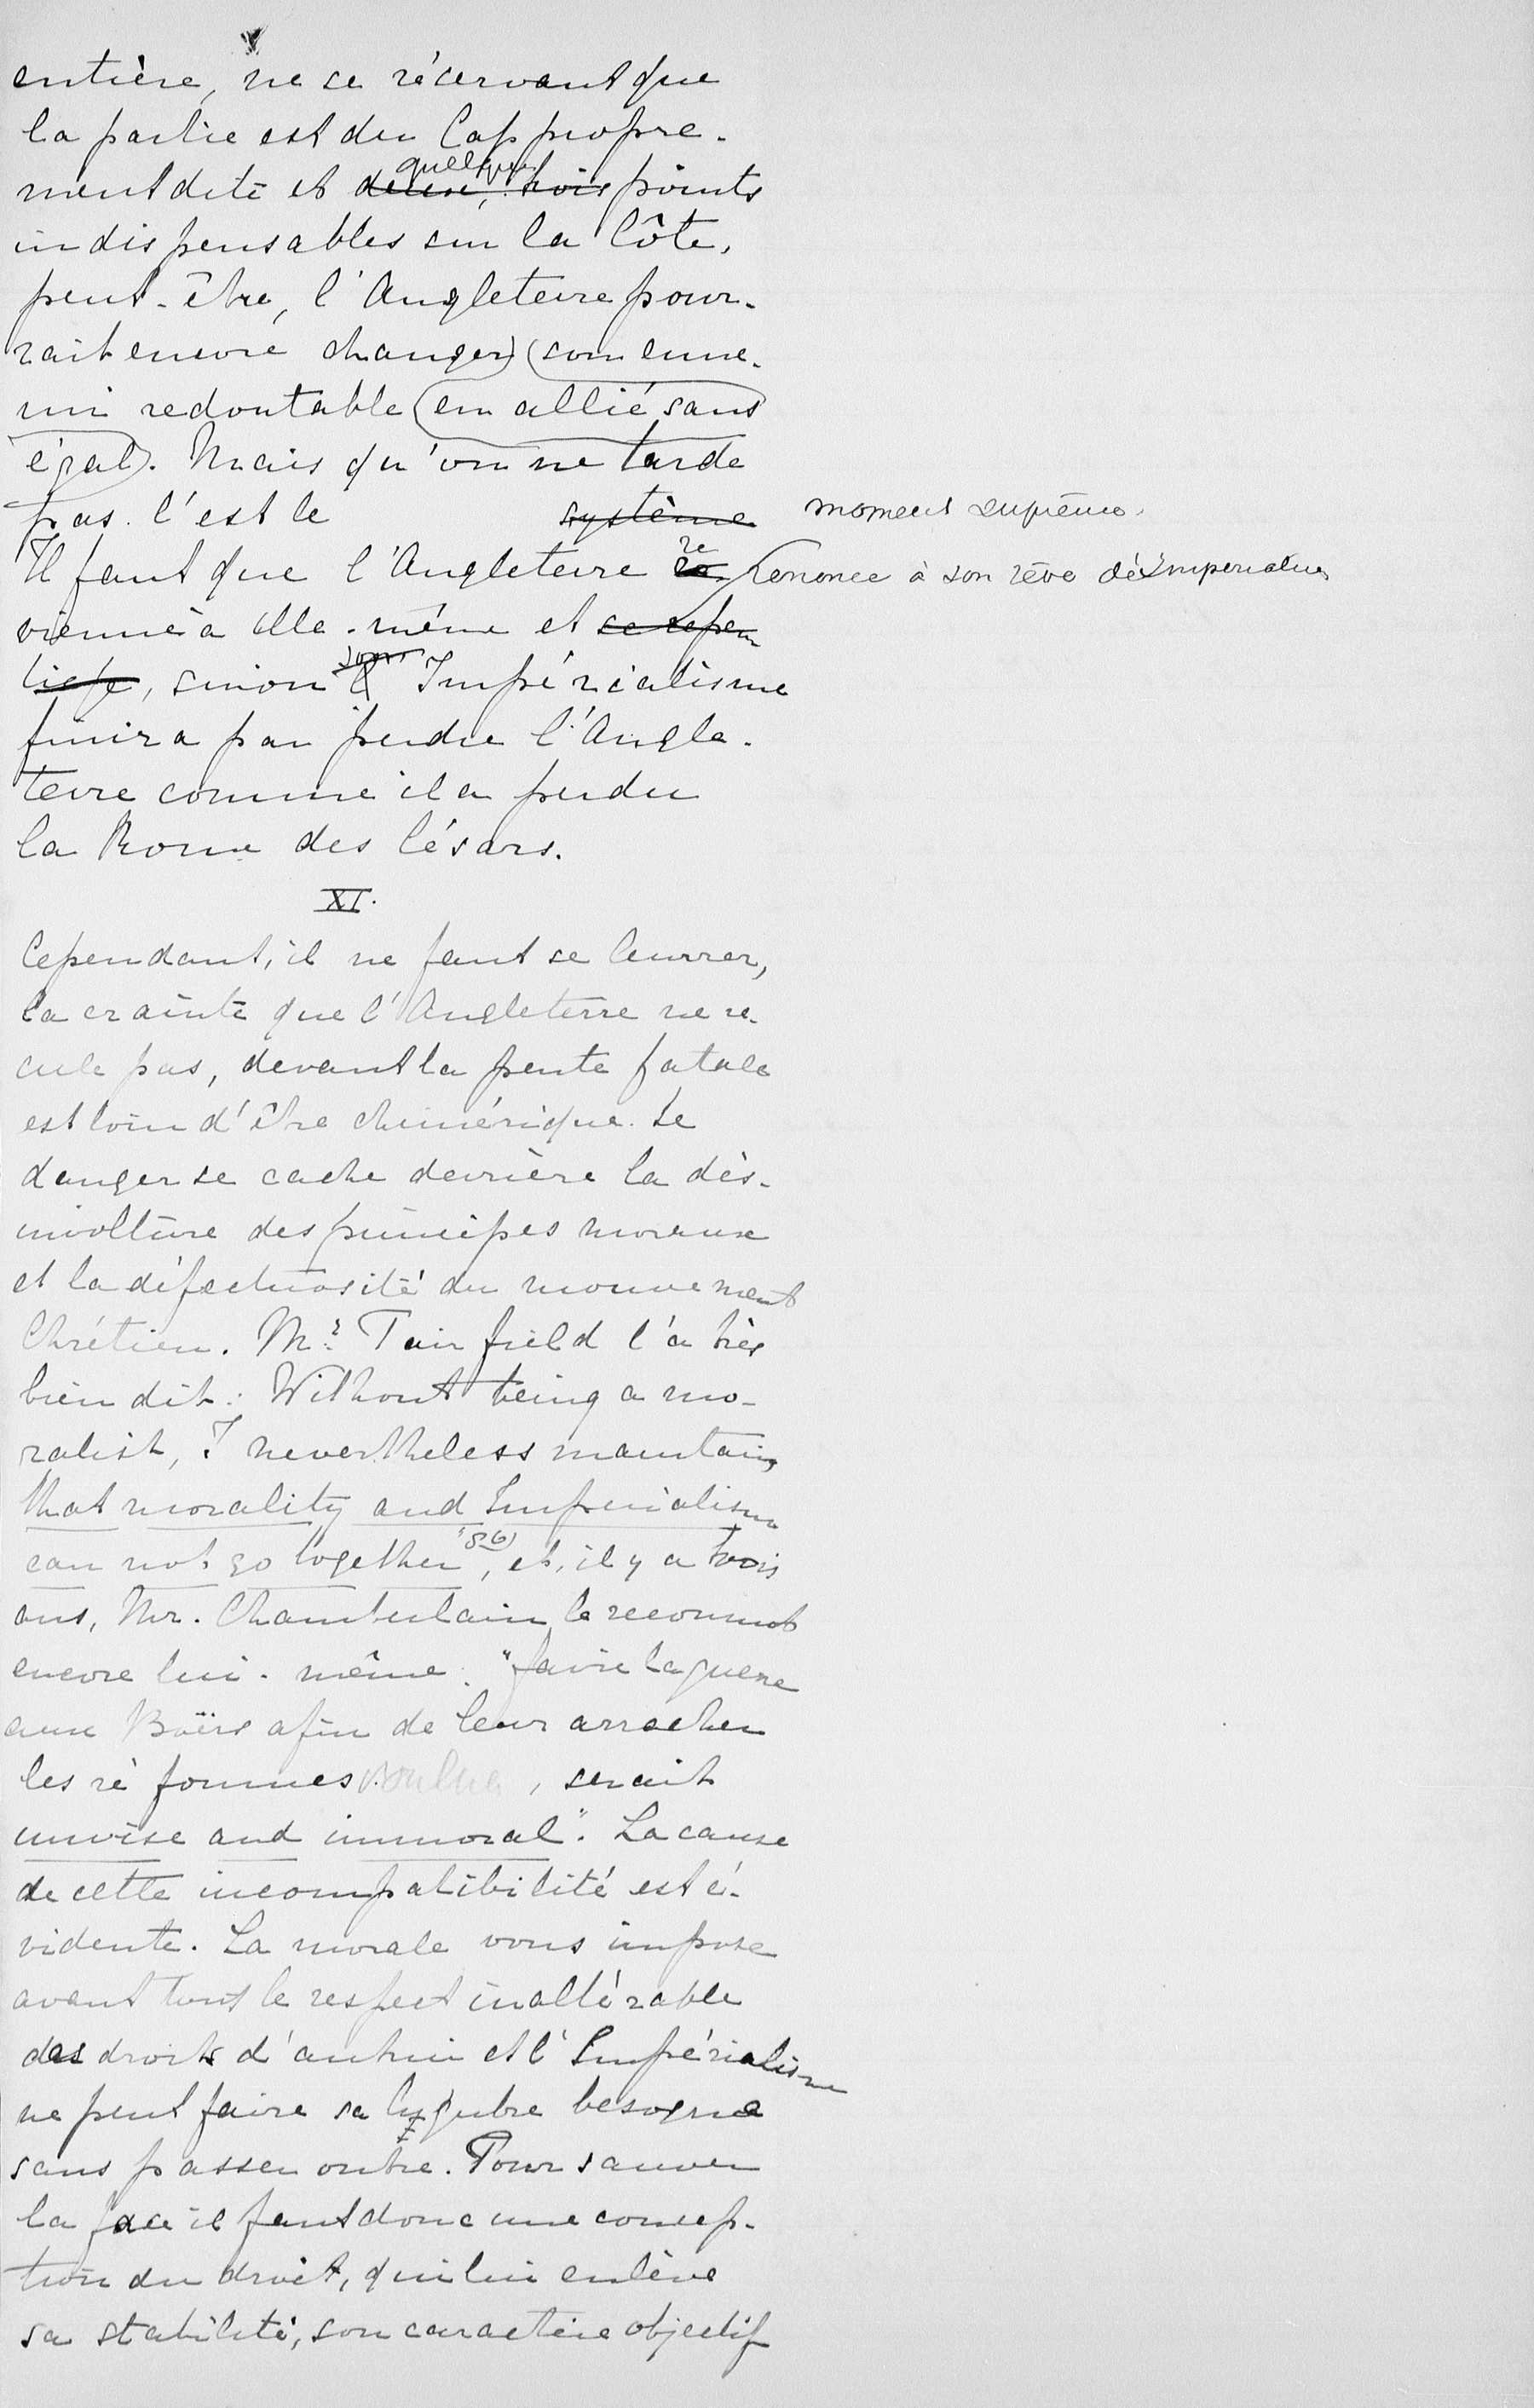 entière, ne se réservant que
la partie est du Cap propre-
ment dite et deux, trois quelques points
indispensables sur la Côte,
peut-être, l'Angleterre pour-
rait encore changer (son enne-
mi redoutable (en allié sans
égal). Mais qu'on ne tarde
pas. C'est le système moment suprême.
Il faut que l'Angleterre re renonce à son rêve d'Imperialisme
vienne à elle-même et se repen
tisse, sinon l' son Impérialisme
finira par perdre l'Angle-
terre comme il a perdu
la Rome des Césars.
XI.
Cependant, il ne faut se leurrer,
la crainte que l'Angleterre ne re-
cule pas, devant la pente fatale
est loin d'être chimérique. Le
danger se cache derrière la dés-
involture des principes moraux
et la défectuosité du mouvement
Chrétien. Mr Fairfield l'a très
bien dit: Without being a mo-
ralist, I nevertheless maintain,
that morality and Imperialism
can not go together (56), et, il y a trois
ans, Mr. Chamberlain le reconnut
encore lui-même: "faire la guerre
aux Boërs afin de leur arracher
les réformes voulues, serait
unwise and immoral". La cause
de cette incompatibilité est é-
vidente. La morale vous impose
avant tout le respect inaltérable
des droits d'autrui et l'Impérialisme
ne peut faire sa lugubre besogne
sans passer outre. Pour sauver
la face il faut donc une concep-
tion du droit, qui lui enlève
sa stabilité, son caractère objectif